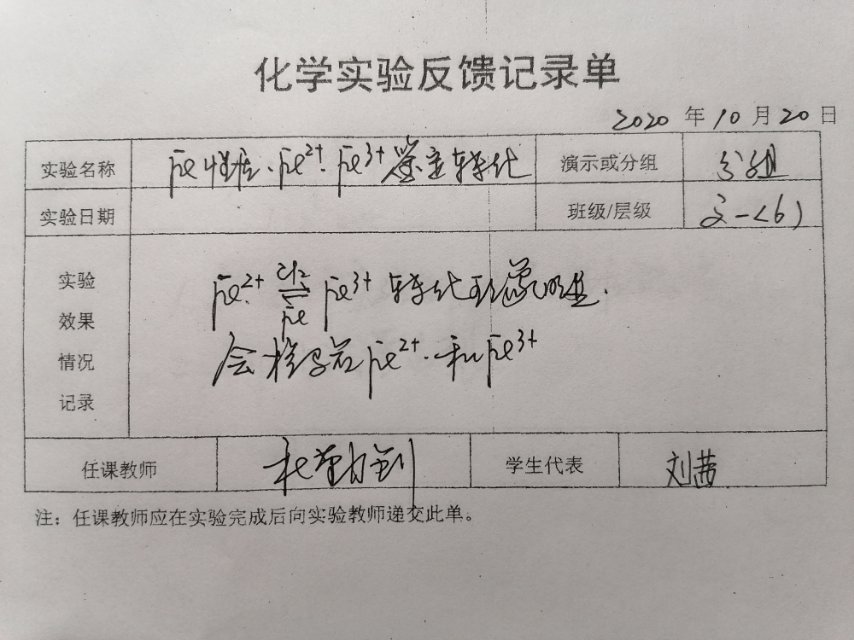 化学实验反馈记录单
2020 年 10 月 20 日
实验名称 Fe性质、Fe²⁺、Fe³⁺鉴定转化 演示或分组 分组
实验日期 班级/层级 文一(6)
实验效果情况记录
Fe²⁺ ⇌ Fe³⁺ 转化现象明显.
Cl₂
Fe
会检验 Fe²⁺和Fe³⁺
任课教师 学生代表 刘茜
注：任课教师应在实验完成后向实验教师递交此单。